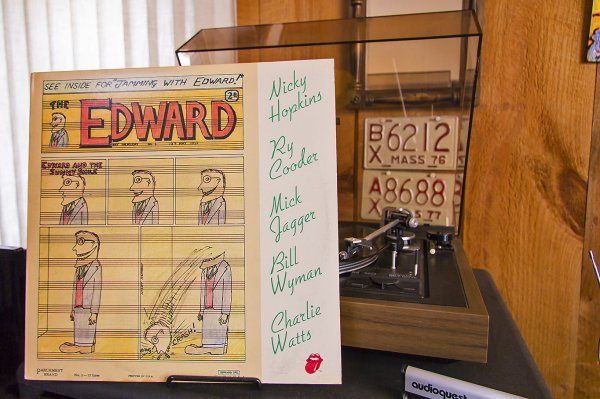 SEE INSIDE FOR "JAMMING WITH EDWARD!"
THE
EDWARD
2d
EDWARD AND THE
SUNSET SMILE
CRASH!
PRINTED IN U.S.A.
Nicky
Hopkins
Ry
Cooder
Mick
Jagger
Bill
Wyman
Charlie
Watts
B
X
6212
MASS 76
A
X
8688
77
audioquest